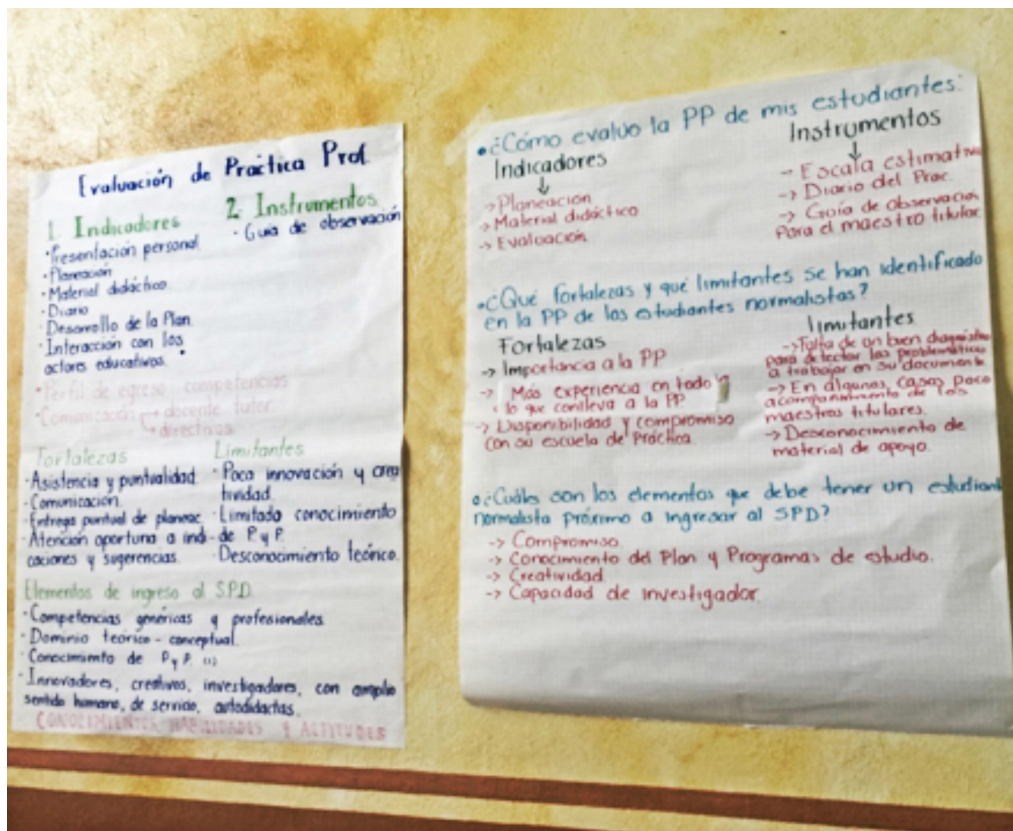 Evaluación de Práctica Prof.
1. Indicadores
· Presentación personal
· Planeación
· Material didáctico.
· Diario
· Desarrollo de la Plan.
· Interacción con los
actores educativos.
· Perfil de egreso competencias
· Comunicación → docente tutor.
→ directivos
2. Instrumentos
· Guía de observación
Fortalezas
· Asistencia y puntualidad.
· Comunicación.
· Entrega puntual de planeac.
· Atención oportuna a indi-
caciones y sugerencias.
Limitantes
· Poca innovación y crea
tividad.
· Limitado conocimiento
de P. y P.
· Desconocimiento teórico.
Elementos de ingreso al S.P.D.
· Competencias genéricas y profesionales.
· Dominio teórico - conceptual.
· Conocimiento de P y P.
· Innovadores, creativos, investigadores, con amplio
sentido humano, de servicio, autodidactas.
CONOCIMIENTOS HABILIDADES Y ACTITUDES
• ¿Cómo evalúo la PP de mis estudiantes:
Indicadores
↓
→ Planeación
→ Material didáctico
→ Evaluación
Instrumentos
↓
→ Escala estimativa
→ Diario del Prac.
→ Guía de observación
Para el maestro titular
• ¿Qué fortalezas y qué limitantes se han identificado
en la PP de los estudiantes normalistas?
Fortalezas
→ Importancia a la PP
→ Más experiencia en todo
lo que conlleva a la PP
→ Disponibilidad y compromiso
con su escuela de Práctica.
limitantes
→ Falta de un buen diagnóstico
para detectar las problemáticas
a trabajar en su documento
→ En algunos casos poco
acompañamiento de los
maestros titulares.
→ Desconocimiento de
material de apoyo.
• ¿Cuáles son los elementos que debe tener un estudiante
normalista próximo a ingresar al SPD?
→ Compromiso
→ Conocimiento del Plan y Programas de estudio.
→ Creatividad
→ Capacidad de investigador.